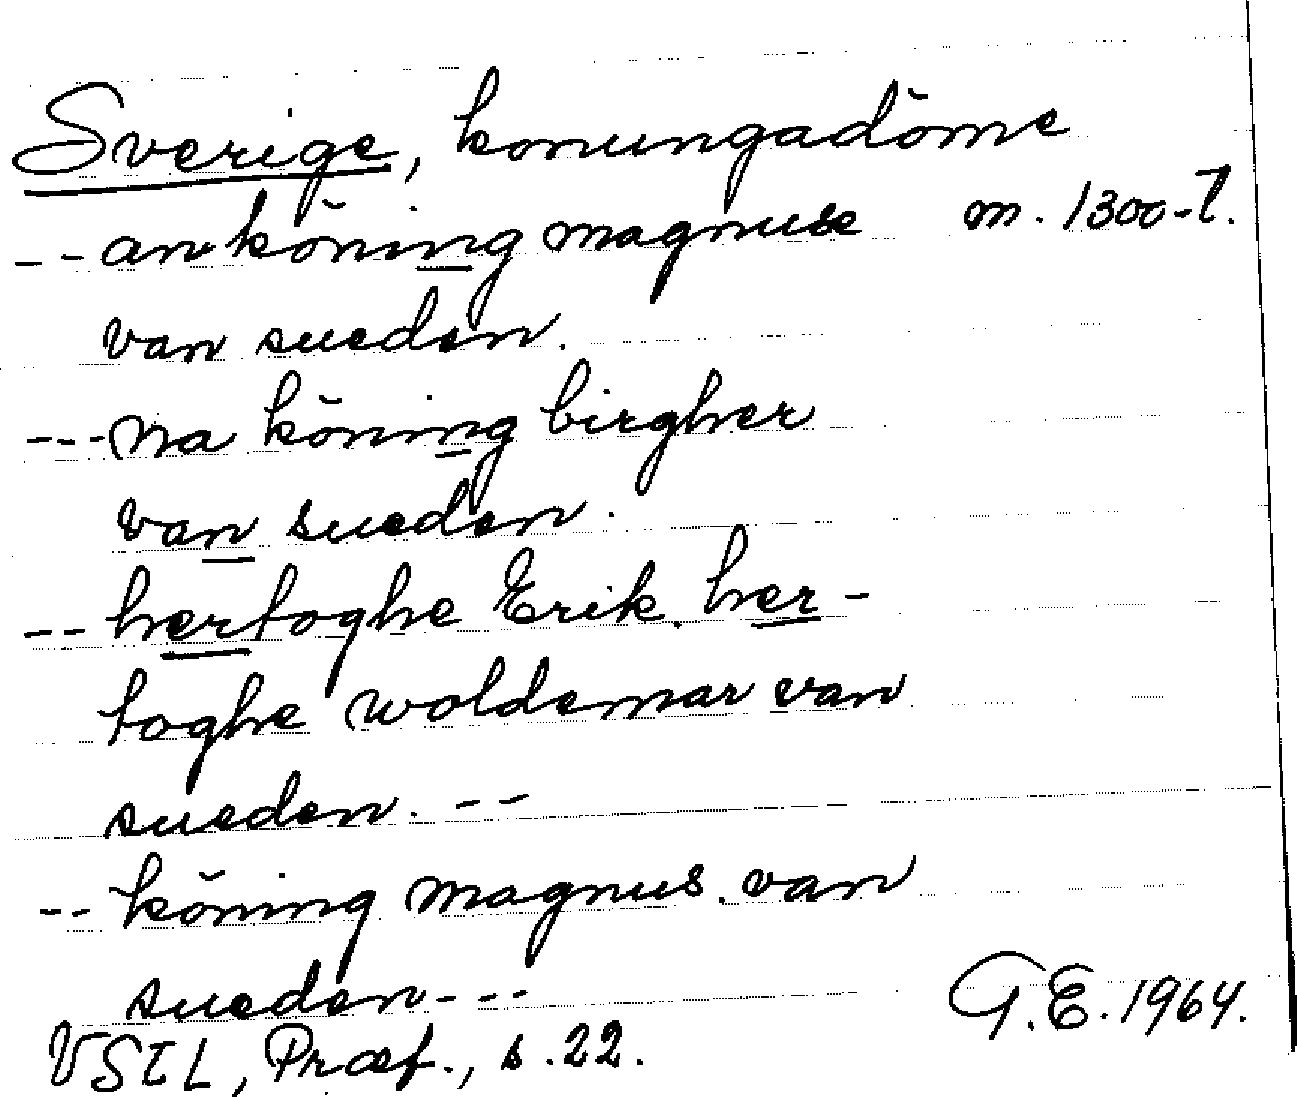 Sverige, konungadöme
-- an köning magnuse m. 1300-t.
van sueden.
--- na köning birgher
van sueden.
-- hertoghe Erik. her-
toghe woldemar van
sueden. --
-- köning magnus. van
sueden ---
G.E. 1964.
VSTL, Præf., s. 22.